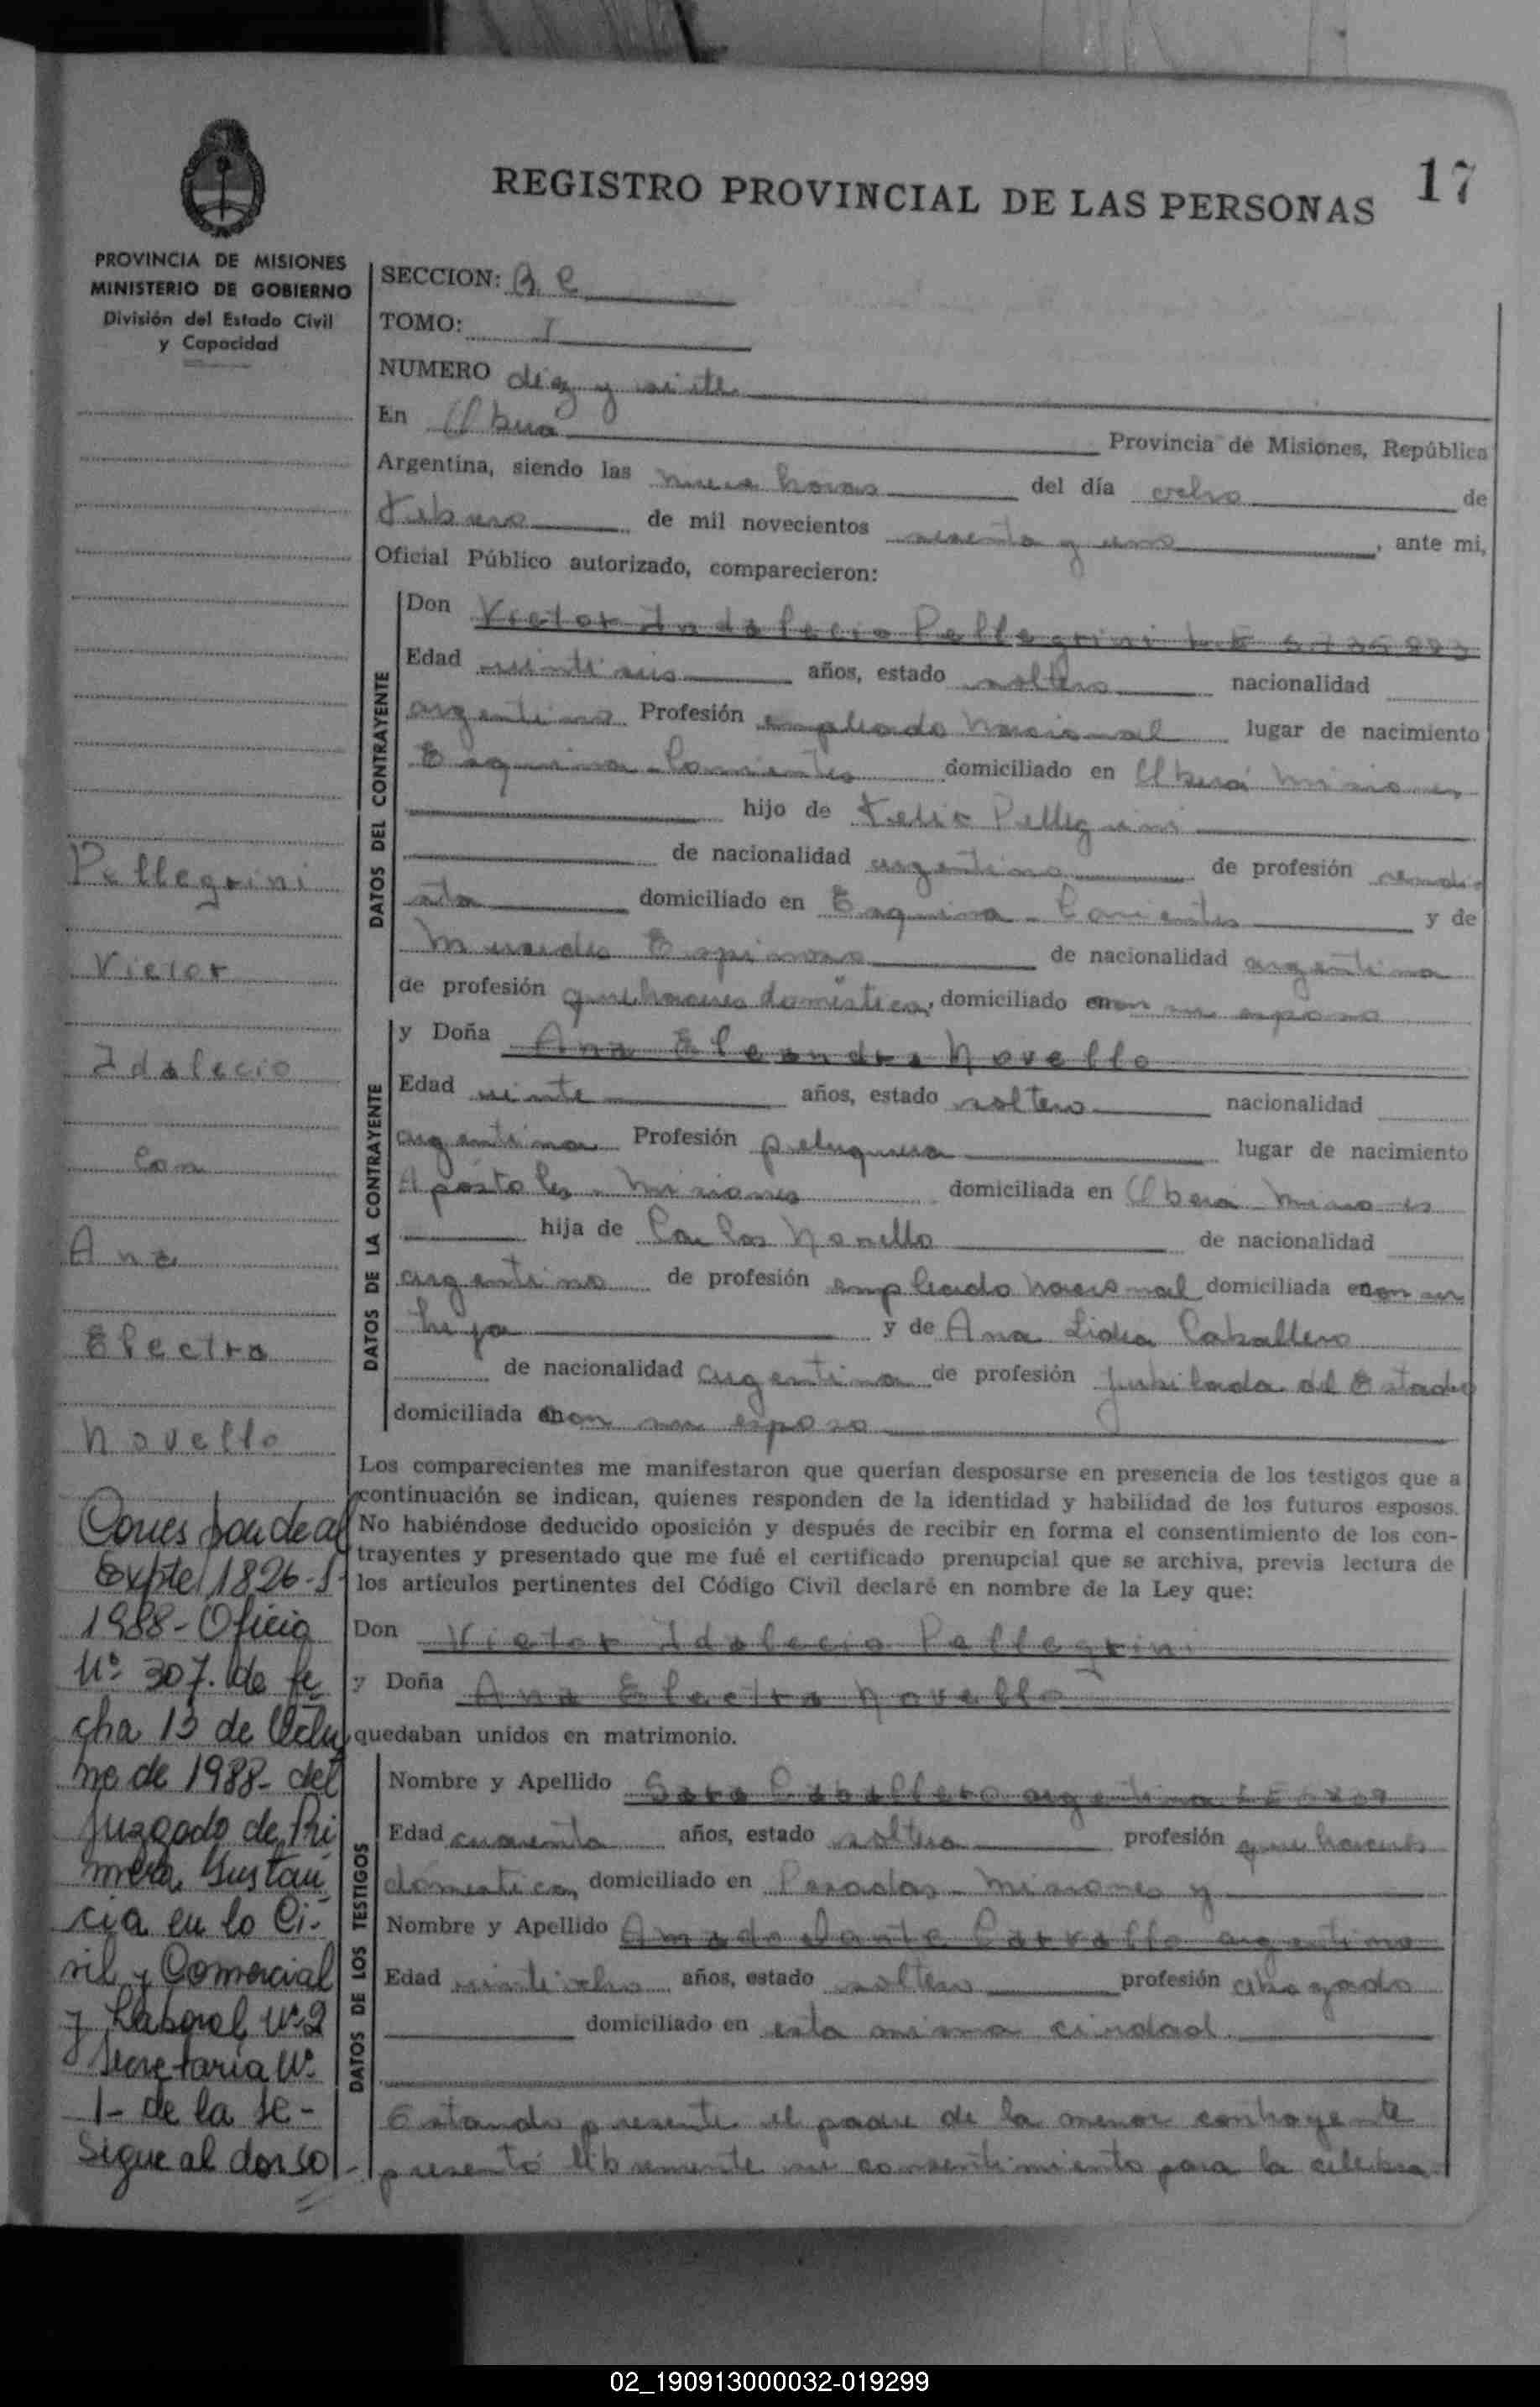 REGISTRO PROVINCIAL DE LAS PERSONAS
17
PROVINCIA DE MISIONES
MINISTERIO DE GOBIERNO
División del Estado Civil
y Capacidad
SECCION:
TOMO: I
NUMERO diez y siete
En Oberá Provincia de Misiones, República
Argentina, siendo las nueve horas del día ocho de
Febrero de mil novecientos sesenta y uno, ante mi,
Oficial Público autorizado, comparecieron:
DATOS DEL CONTRAYENTE
Don Victor Indalecio Pellegrini
Edad veintiseis años, estado soltero nacionalidad
argentino Profesión empleado nacional lugar de nacimiento
Esquina - Corrientes domiciliado en Oberá Misiones
hijo de Pellegrini
de nacionalidad argentino de profesión
domiciliado en Esquina - Corrientes y de
Mercedes Espinosa de nacionalidad argentina
de profesión quehaceres domésticos, domiciliado con su esposo
DATOS DE LA CONTRAYENTE
y Doña Ana Novello
Edad veinte años, estado soltera nacionalidad
argentina Profesión peluquera lugar de nacimiento
Apóstoles - Misiones domiciliada en Oberá Misiones
hija de Carlos Novello de nacionalidad
argentino de profesión empleado nacional domiciliada con su
hija y de Ana Lidia Caballero
de nacionalidad argentina de profesión Jubilada del Estado
domiciliada con su esposo
Los comparecientes me manifestaron que querían desposarse en presencia de los testigos que a
continuación se indican, quienes responden de la identidad y habilidad de los futuros esposos.
No habiéndose deducido oposición y después de recibir en forma el consentimiento de los con-
trayentes y presentado que me fué el certificado prenupcial que se archiva, previa lectura de
los artículos pertinentes del Código Civil declaré en nombre de la Ley que:
Don Victor Idalecio Pellegrini
y Doña Ana Electra Novello
quedaban unidos en matrimonio.
DATOS DE LOS TESTIGOS
Nombre y Apellido Sara Caballero argentina
Edad cuarenta años, estado soltera profesión quehaceres
domésticos, domiciliado en Posadas - Misiones y
Nombre y Apellido Amado Dante argentino
Edad veintiocho años, estado soltero profesión abogado
domiciliado en esta misma ciudad.
Estando presente el padre de la menor contrayente
presentó libremente su consentimiento para la celebra-
Pellegrini
Victor
Idalecio
Con
Ana
Electra
Novello
Corresponde al
Expte 1826-S-
1988- Oficio
Nº 307. de fe
cha 13 de Octu
bre de 1988- del
Juzgado de Pri
mera Instan
cia en lo Ci-
vil y Comercial
y Laboral Nº 2
Secretaría Nº
1- de la Se-
Sigue al dorso -
02_190913000032-019299